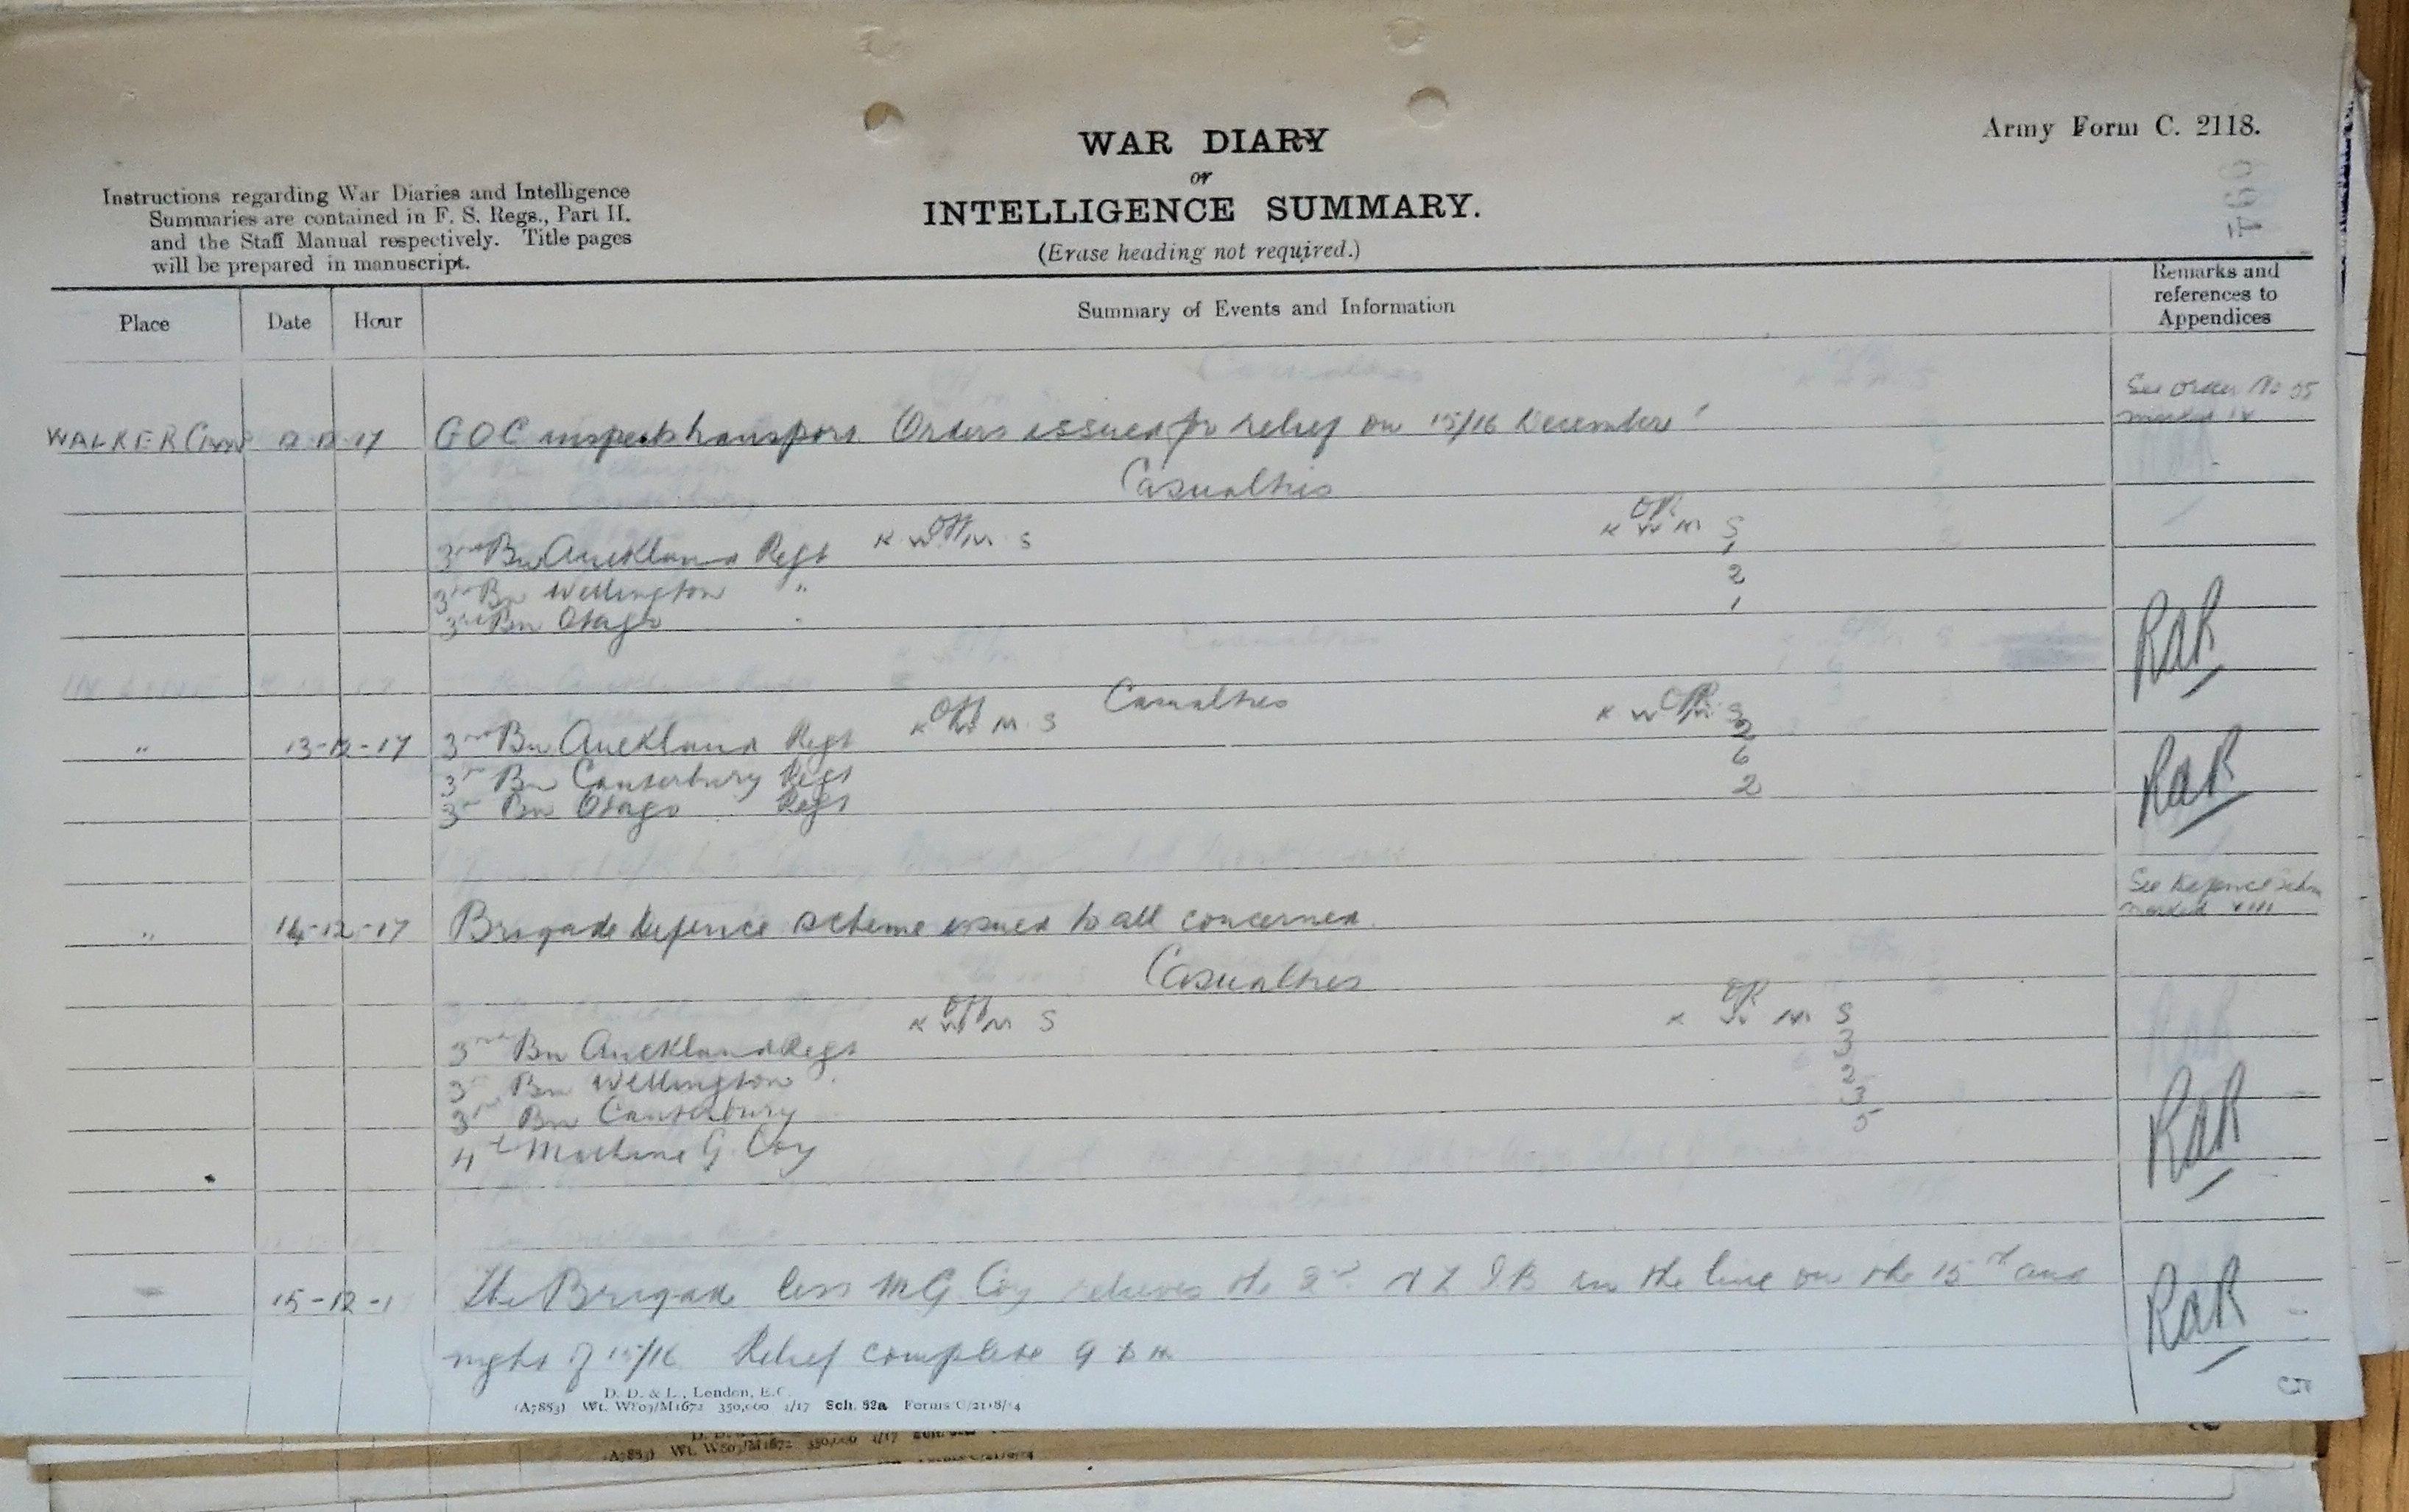 Army Form C. 2118.
WAR DIARY
or
INTELLIGENCE SUMMARY.
(Erase heading not required.)
Instructions regarding War Diaries and Intelligence
Summaries are contained in F. S. Regs., Part II.
and the Staff Manual respectively. Title pages
will be prepared in manuscript.
Place Date Hour Summary of Events and Information Remarks and references to Appendices
See Order No 35
marked IX
WALKER Camp 12-12-17 GOC inspects transport. Orders issued for relief on 15/16 December
Casualties
Off OR
K W M S K W M S
3rd Bn Auckland Regt 1
3rd Bn Wellington " 2
3rd Bn Otago " 1
RaR
Casualties
Off OR
K W M S K W M S
" 13-12-17 3rd Bn Auckland Regt 2
3rd Bn Canterbury Regt 6
3rd Bn Otago Regt 2
RaR
See Defence Schm
marked VIII
" 14-12-17 Brigade defence scheme issued to all concerned.
Casualties
Off OR
K W M S K W M S
3rd Bn Auckland Regt 3
3rd Bn Wellington " 2
3rd Bn Canterbury 3
4th Machine G. Coy 5
RaR
" 15-12-1 The Brigade less MG Coy relieves the 2nd NZ I.B in the line on the 15th and
night of 15/16 Relief complete 9 pm
RaR
5
D. D. & L., London, E.C.
(A7883) Wt. W809/M1672 350,000 4/17 Sch. 52a Forms C/2118/14